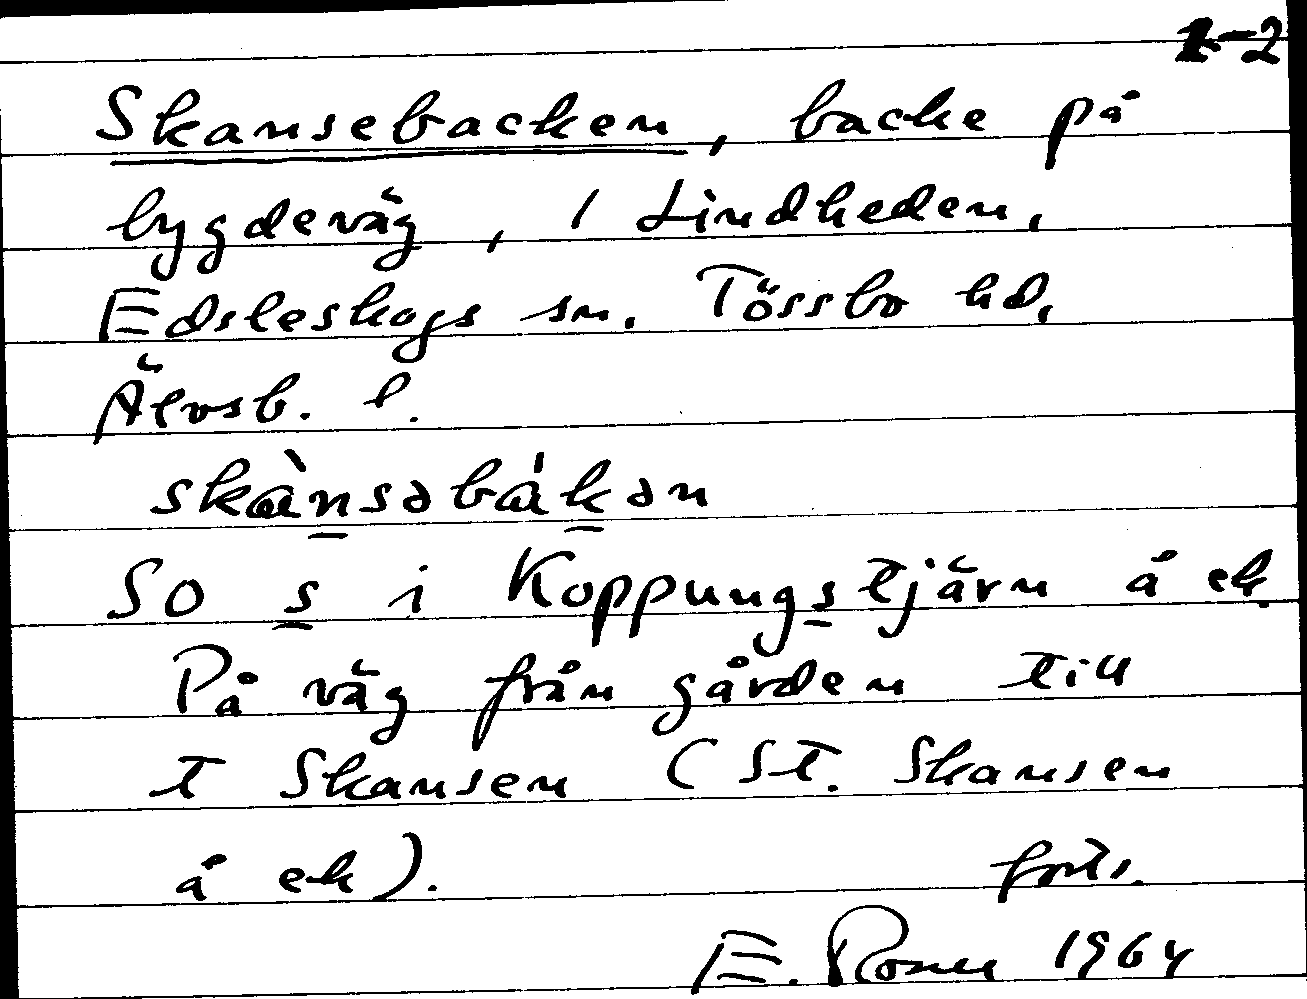 1-2
Skansebacken, backe på
bygdeväg, 1 Lindheden,
Edsleskogs sn. Tössbo hd.
Älvsb. l.
skànsəbák̲ən
SO s̲ i Koppungs̲tjärn å ek
På väg från gården till
t Skansen (St. Skansen
å ek). forts.
E. Rosell 1964